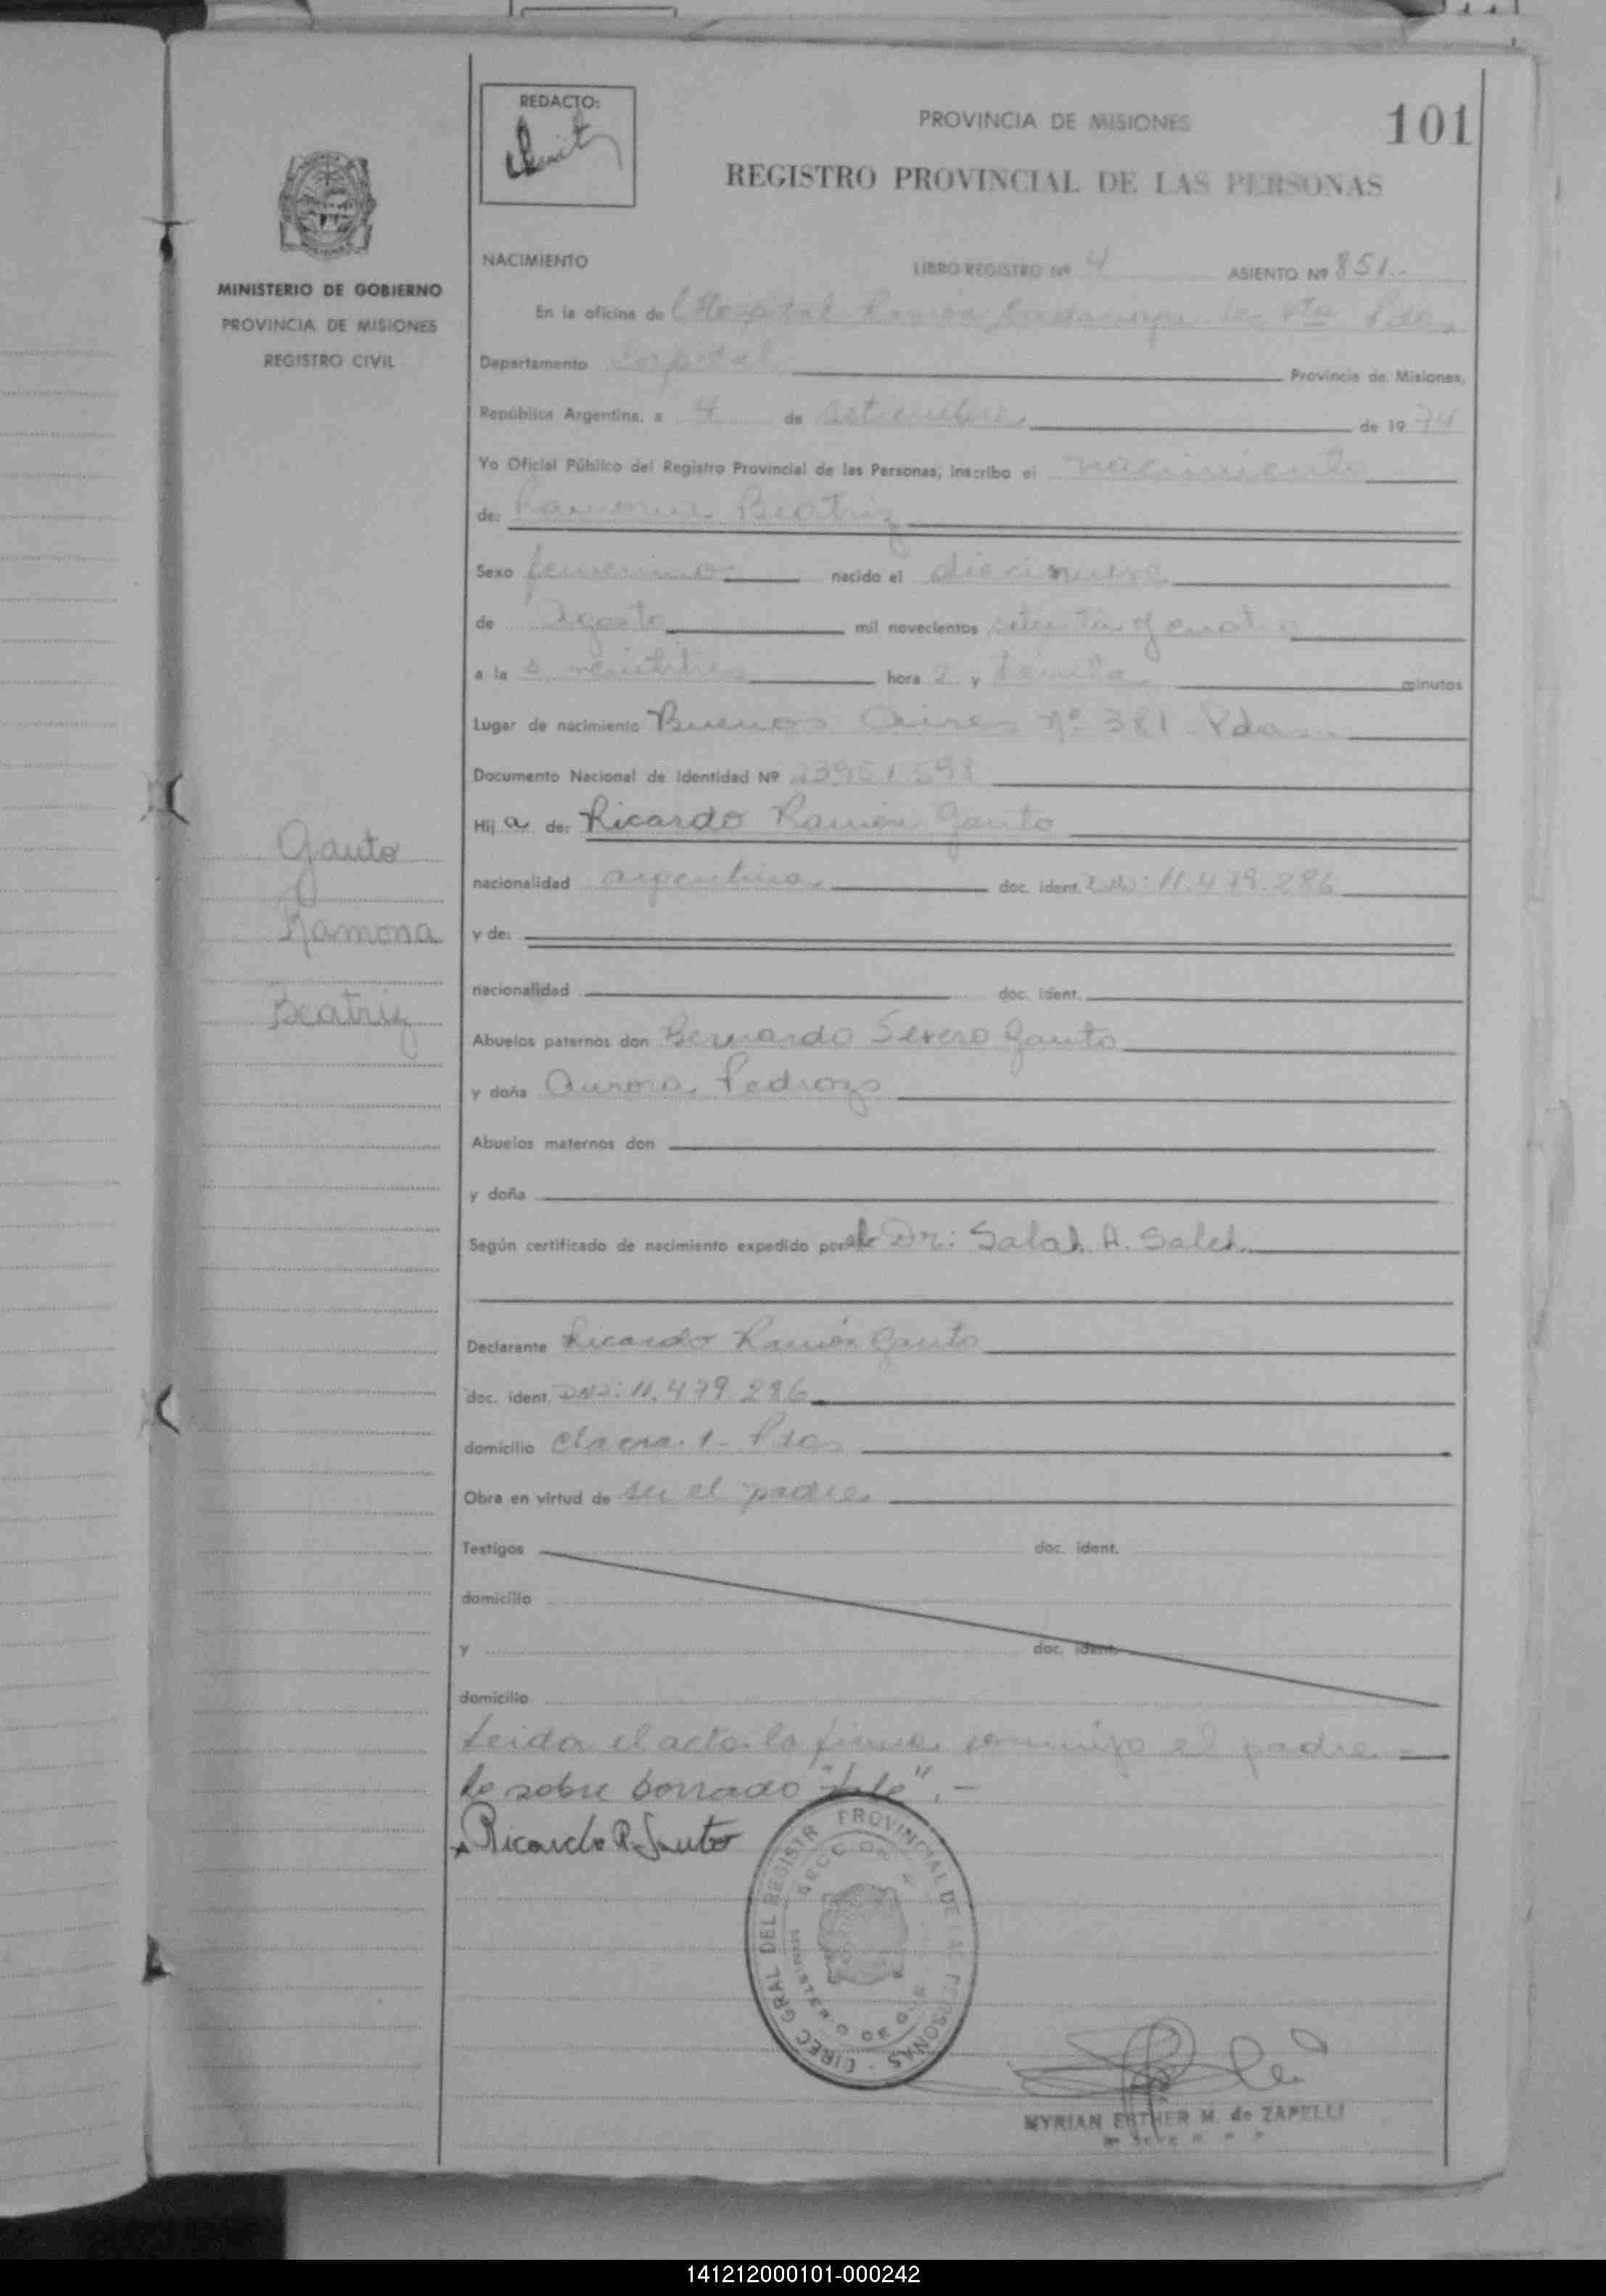 REDACTO:
PROVINCIA DE MISIONES
101
REGISTRO PROVINCIAL DE LAS PERSONAS
MINISTERIO DE GOBIERNO
PROVINCIA DE MISIONES
REGISTRO CIVIL
NACIMIENTO LIBRO REGISTRO Nº 4 ASIENTO Nº 851.-
En la oficina de l Hospital Ramón Pdas.
Departamento Capital Provincia de Misiones,
República Argentina, a 4 de setiembre de 1974
Yo Oficial Público del Registro Provincial de las Personas, inscribo el nacimiento
de: Ramona Beatriz
Sexo femenino nacido el diecinueve
de Agosto mil novecientos setenta y cuatro
a la s veintitres hora s y minutos
Lugar de nacimiento Buenos Aires Nº 381 - Pdas.
Documento Nacional de Identidad Nº
Hij a de: Ricardo Ramón Gauto
nacionalidad argentina doc. ident. D.N.I: 11.479.286
y de:
nacionalidad doc. ident.
Gauto
Ramona
Beatriz
Abuelos paternos don Bernardo Severo Gauto
y doña Aurora Pedrozo
Abuelos maternos don
y doña
Según certificado de nacimiento expedido por el Dr: Salah A. Saleh
Declarante Ricardo Ramón Gauto
doc. ident. DNI: 11.479.286
domicilio chacra 1 - Pdas
Obra en virtud de ser el padre
Testigos doc. ident.
domicilio
y doc. ident.
domicilio
Leida el acta la firma conmigo el padre.-
Lo sobre borrado "Vale".-
Ricardo R. Gauto
DIREC GRAL DEL REGISTR PROVINCIAL DE LAS PERSONAS
MINISTERIO DE
MYRIAN ESTHER M. de ZAPELLI
141212000101-000242